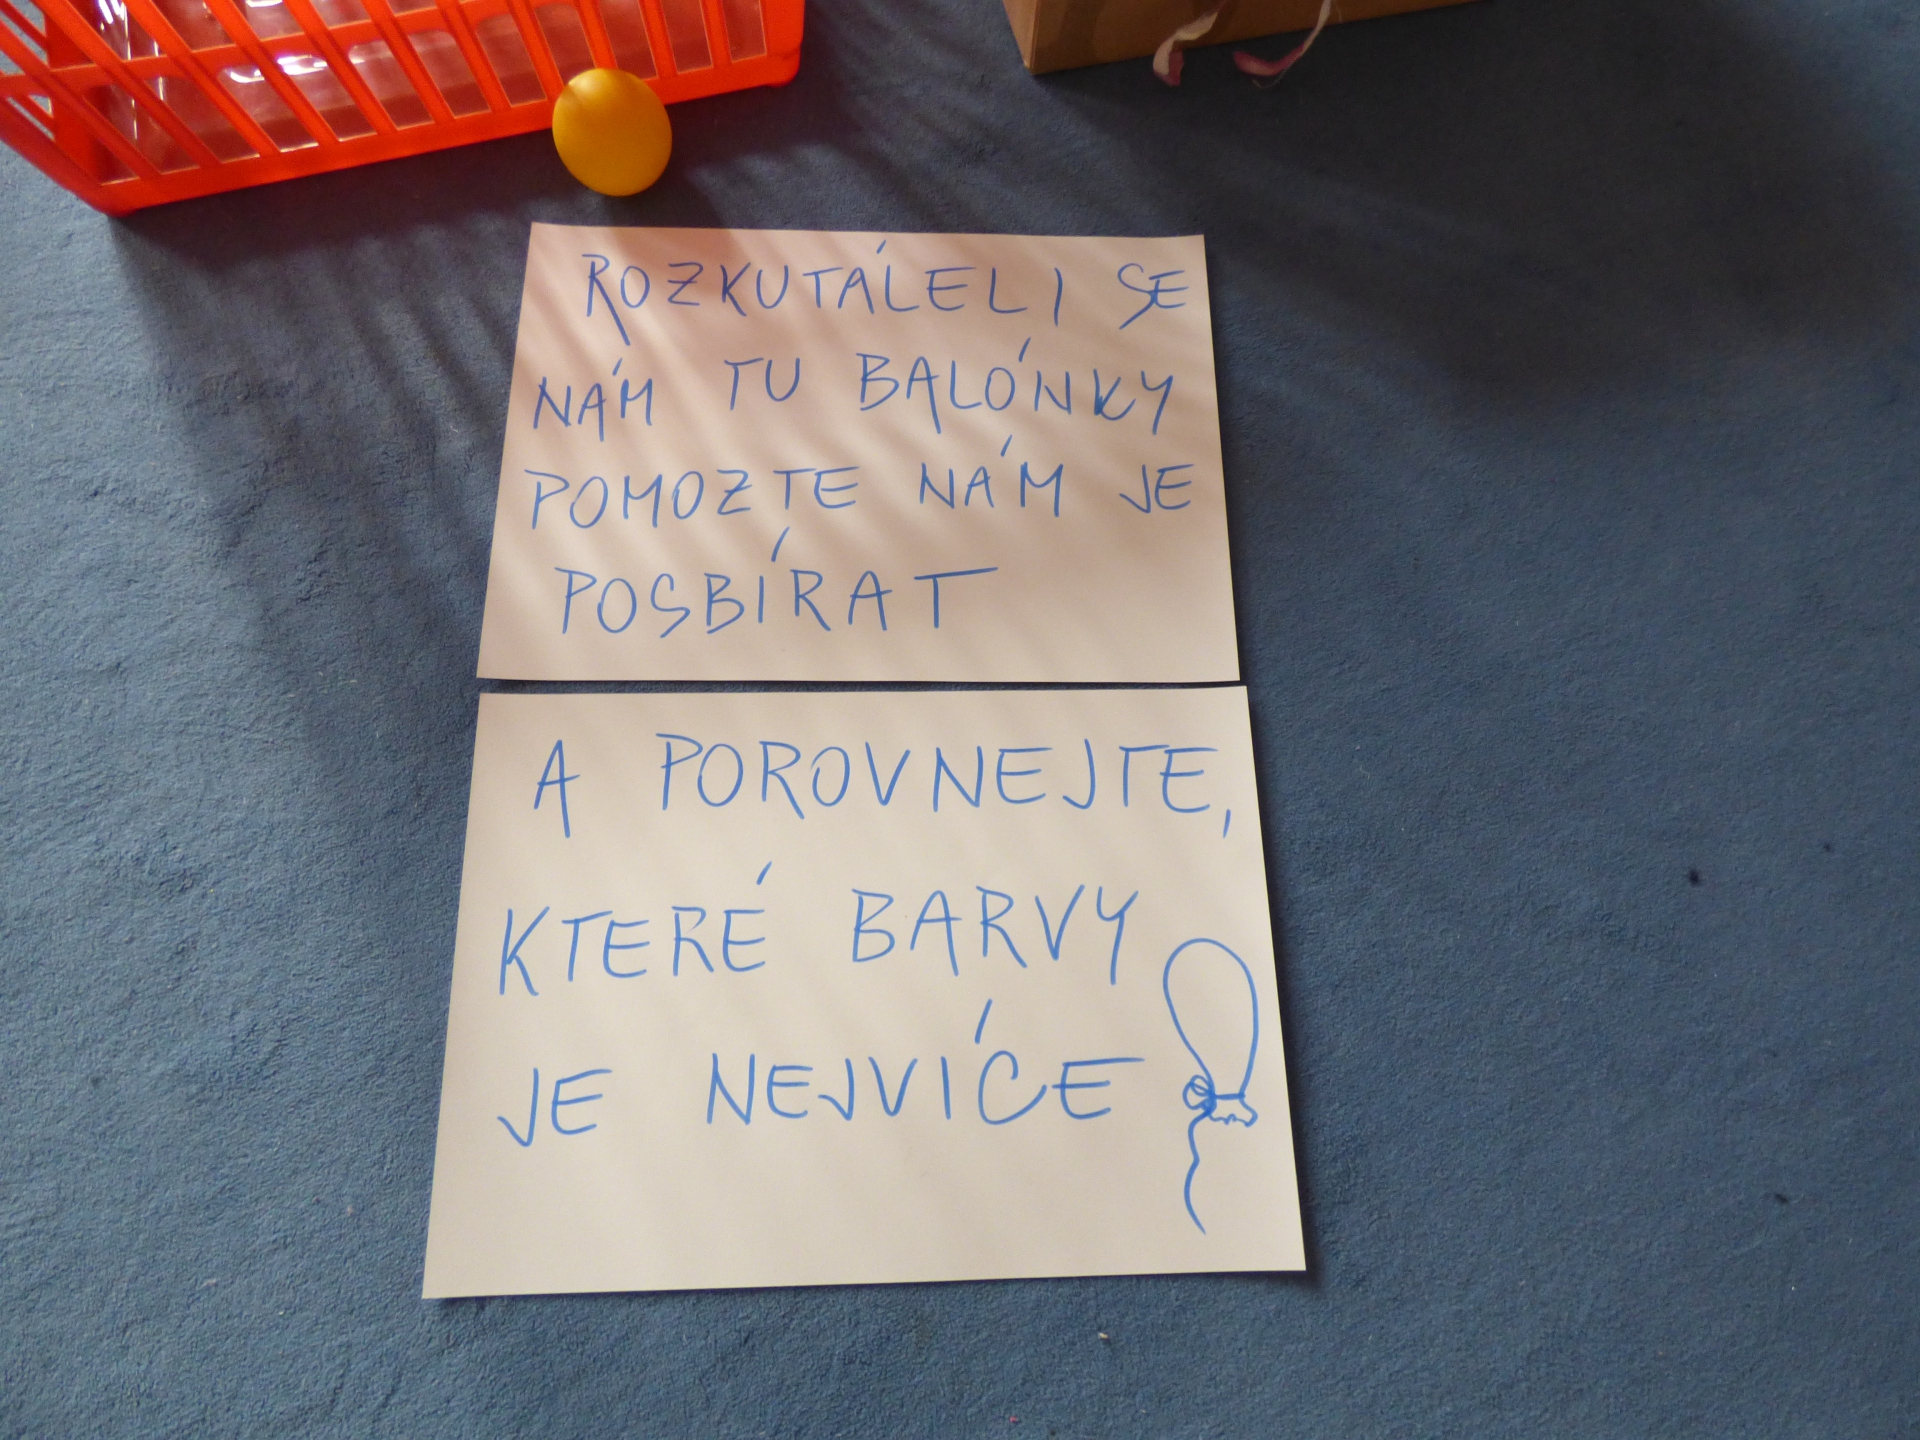 ROZKUTÁLELI SE
NÁM TU BALÓNKY
POMOZTE NÁM JE
POSBÍRAT
A POROVNEJTE,
KTERÉ BARVY
JE NEJVÍCE